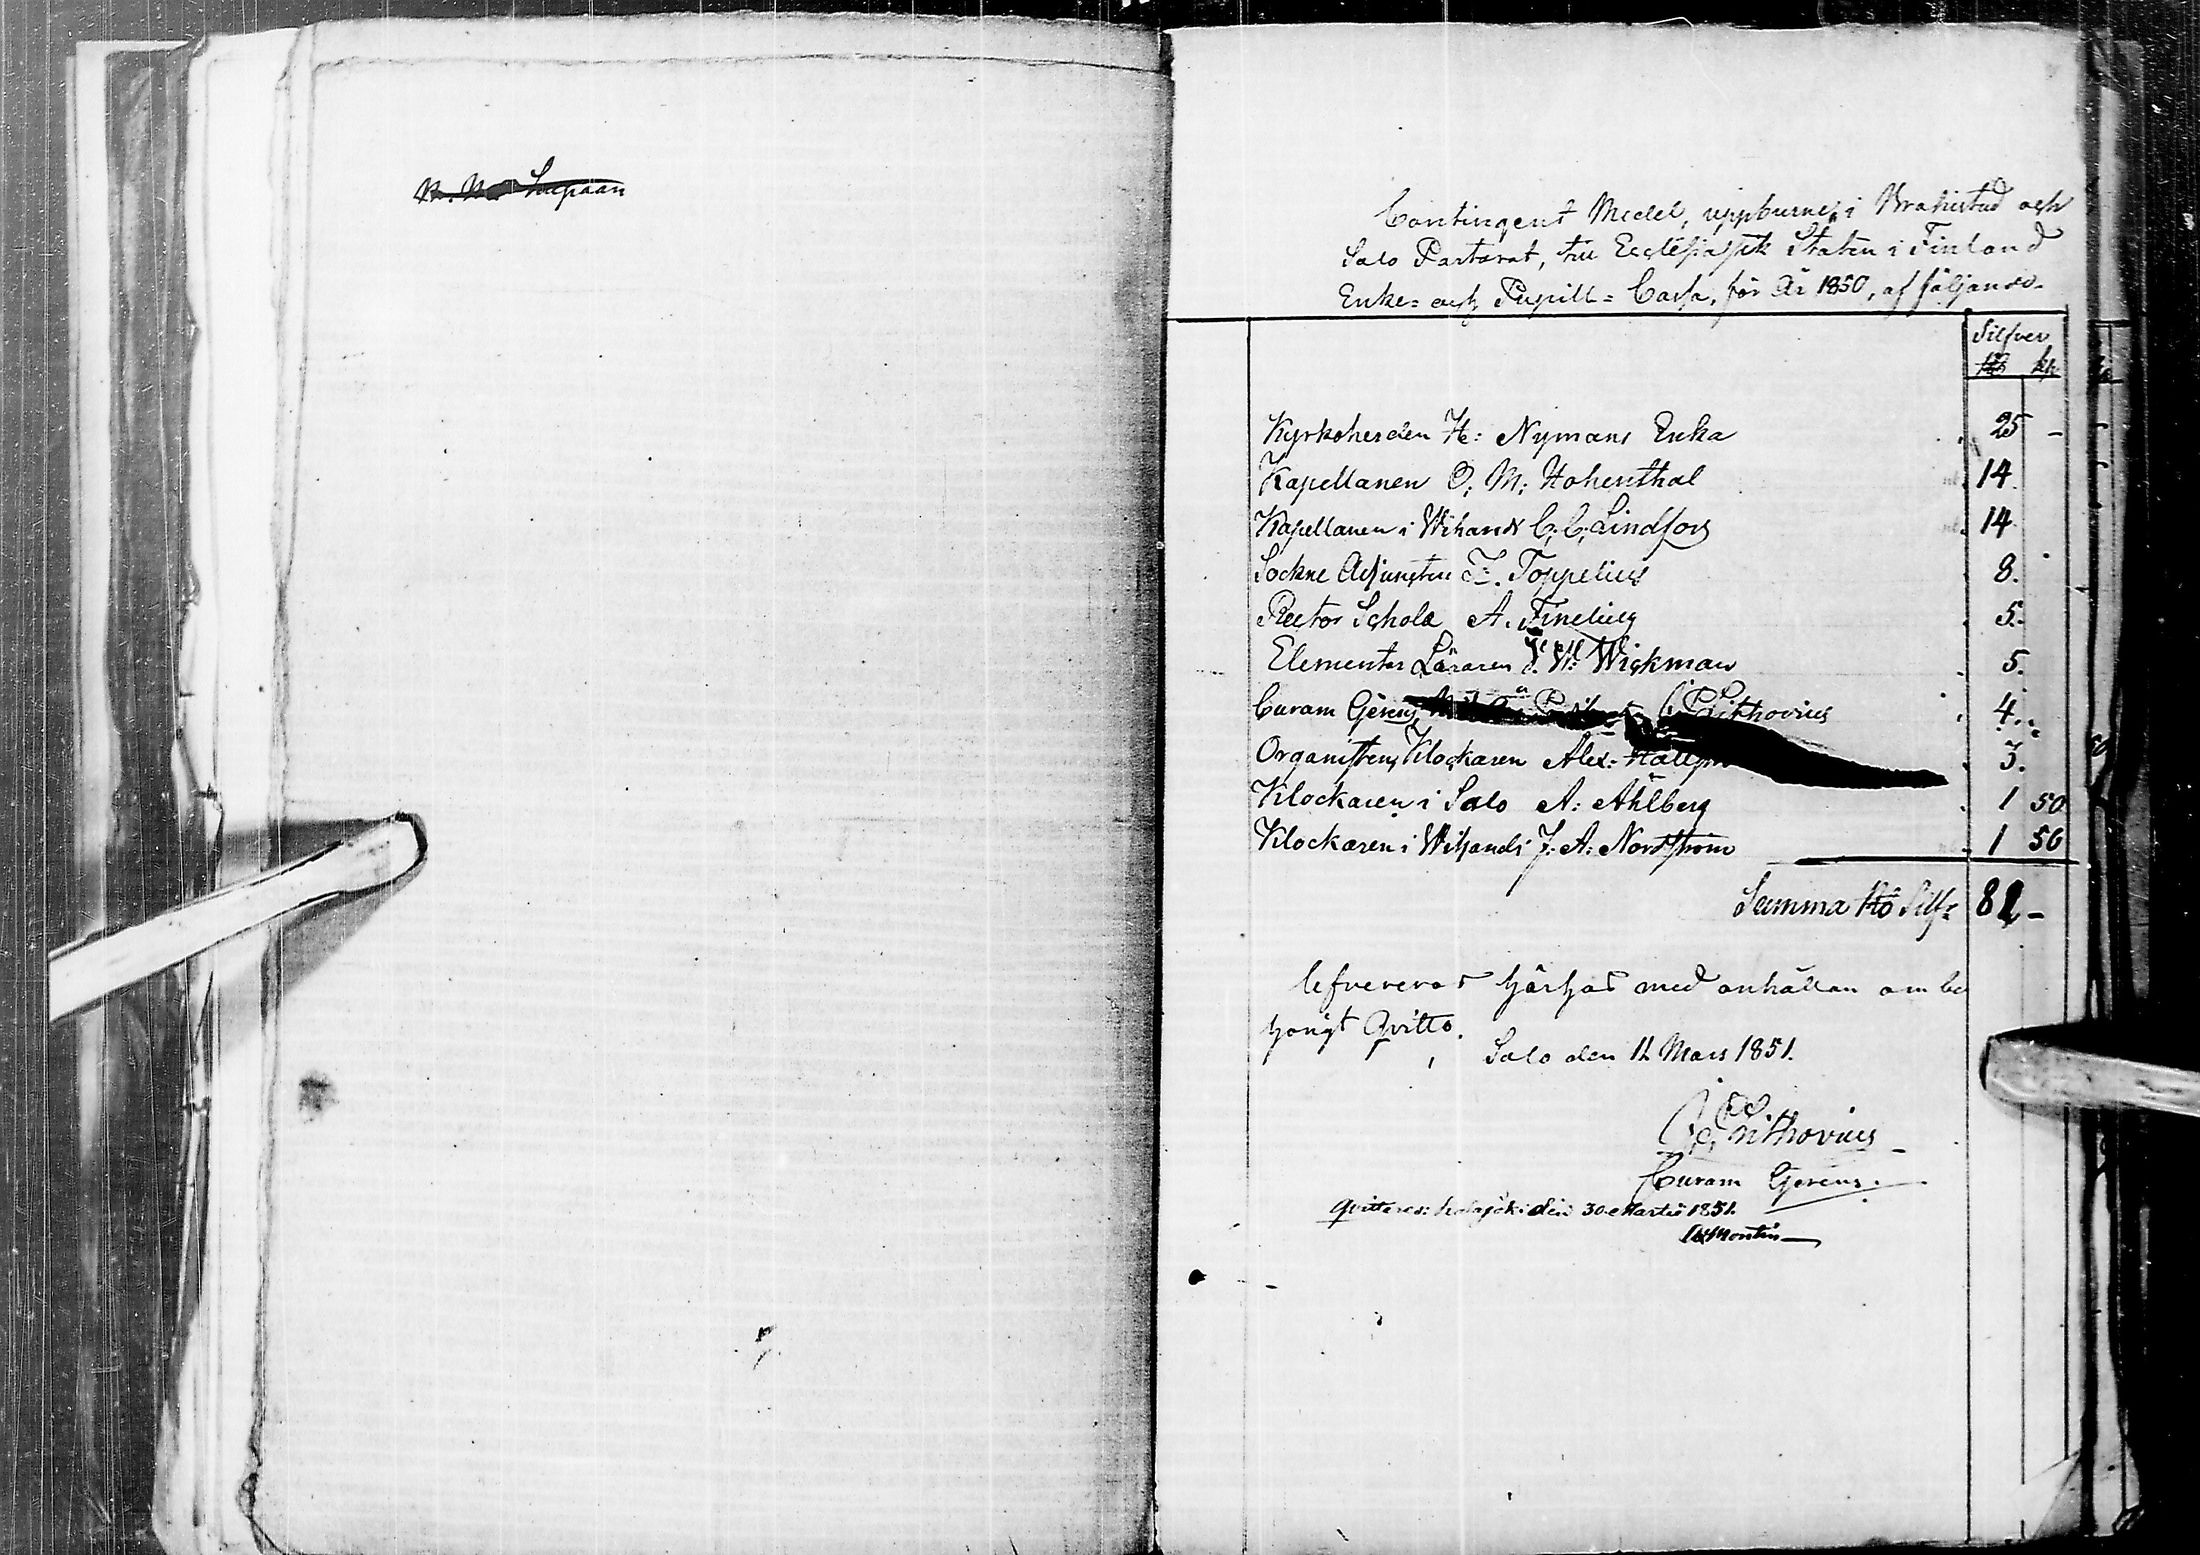 Contingent Medel, uppburne i Brahestad och
Salo Pastorat, till Ecclesiastik Staten i Finland
Enke= och Pupill= Cassa, för År 1850, af följande.
Silfver
Rb kp
Kyrkoherden H: Nymans Enka 25 -
Kapellanen O. M. Hohenthal 14.
Kapellanen i Wihandi C. C. Lindfors 14
Sockne Adjuncten Z. Toppelius 8.
Rector Scholæ A. Finelius 5.
Elementar Läraren J. W: Wickman 5.
Curam Gerens Lithovius 4.
Organisten, Klockaren Alex: 3.
Klockaren i Salo A: Ahlberg 1 50
Klockaren i Wihandi J. A: Nordström 1 50
Summa Rb Silfr 81 -
lefvereras härhos med anhållan om be
hörigt Qvitto.
Salo den 11 Mars 1851.
Lithovius
Curam Gerens.
Qvitteras: Kalajoki den 30 Martii 1851.
Montin